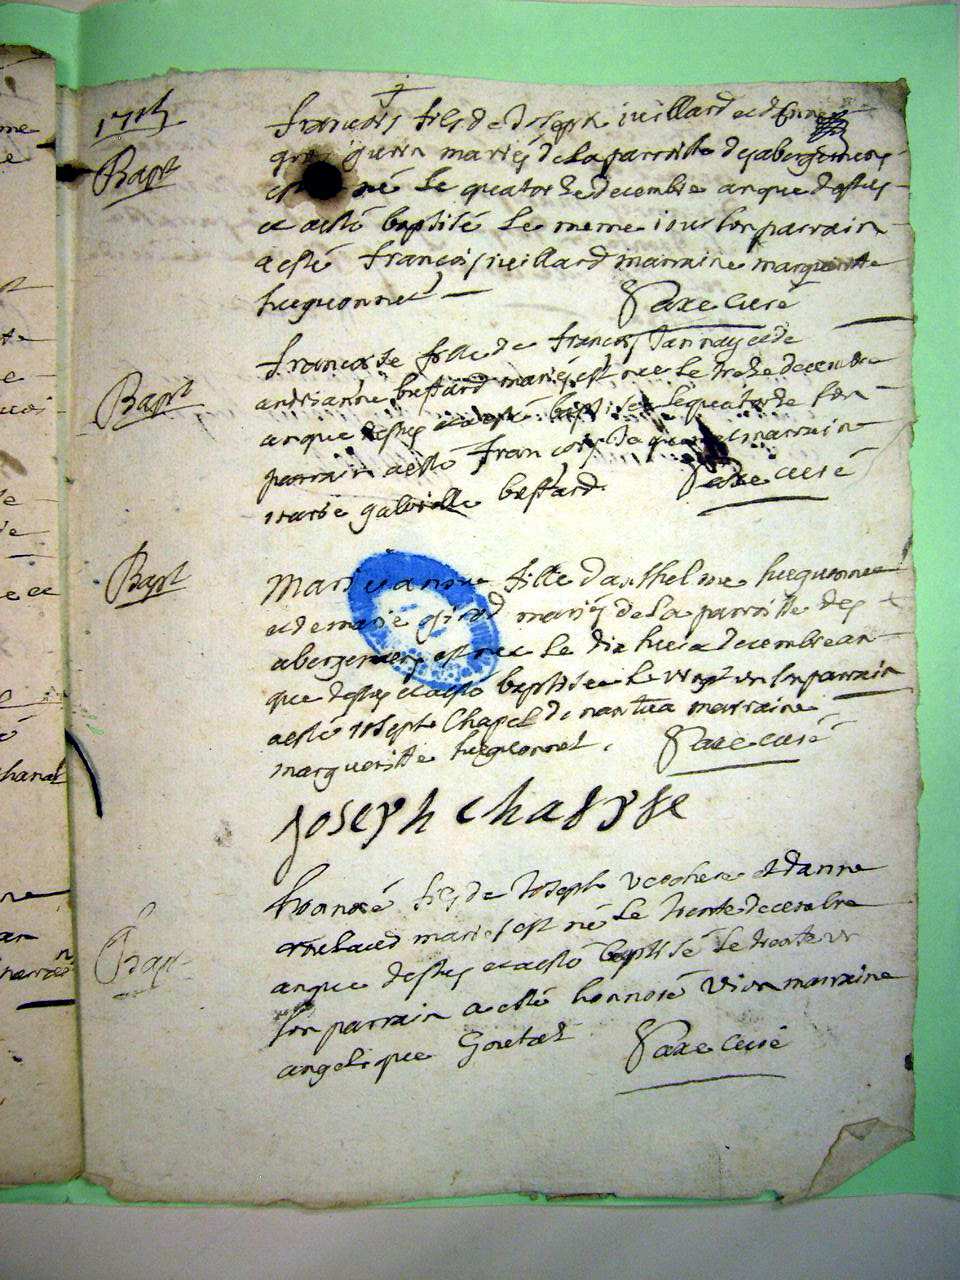 1715
Bapt
francois fils de Joseph juillard et d'Enne
guerin mariés de la parroisse des abergemens
est né le quatorze decembre an que dessus
et a esté baptisé le meme jour son parrain
a esté francois juillard marraine marguerite
hugonnet
Saxe curé
Bapt
francoise fille de francois Jannay et de
andrianne buffard mariés est née le treze decembre
an que dessus et a esté baptisée le quatorze son
parrain a esté francois marraine
marie gabrielle buffard
Saxe curé
Bapt
Marie anne fille d'anthelme hugonnet
et de marie girod mariés de la parroisse des
abergemens est née le dix huict decembre an
que dessus et a esté baptisée le vingt un son parrain
a esté joseph Chapel de nantua marraine
marguerite hugonnet.
Saxe curé
joseph
Bapt
honoré fils de Joseph verchere et d'anne
mariés est né le trente decembre
an que dessus et a esté baptisé le trente un
son parrain a esté honnoré vion marraine
angelique Goutet
Saxe curé